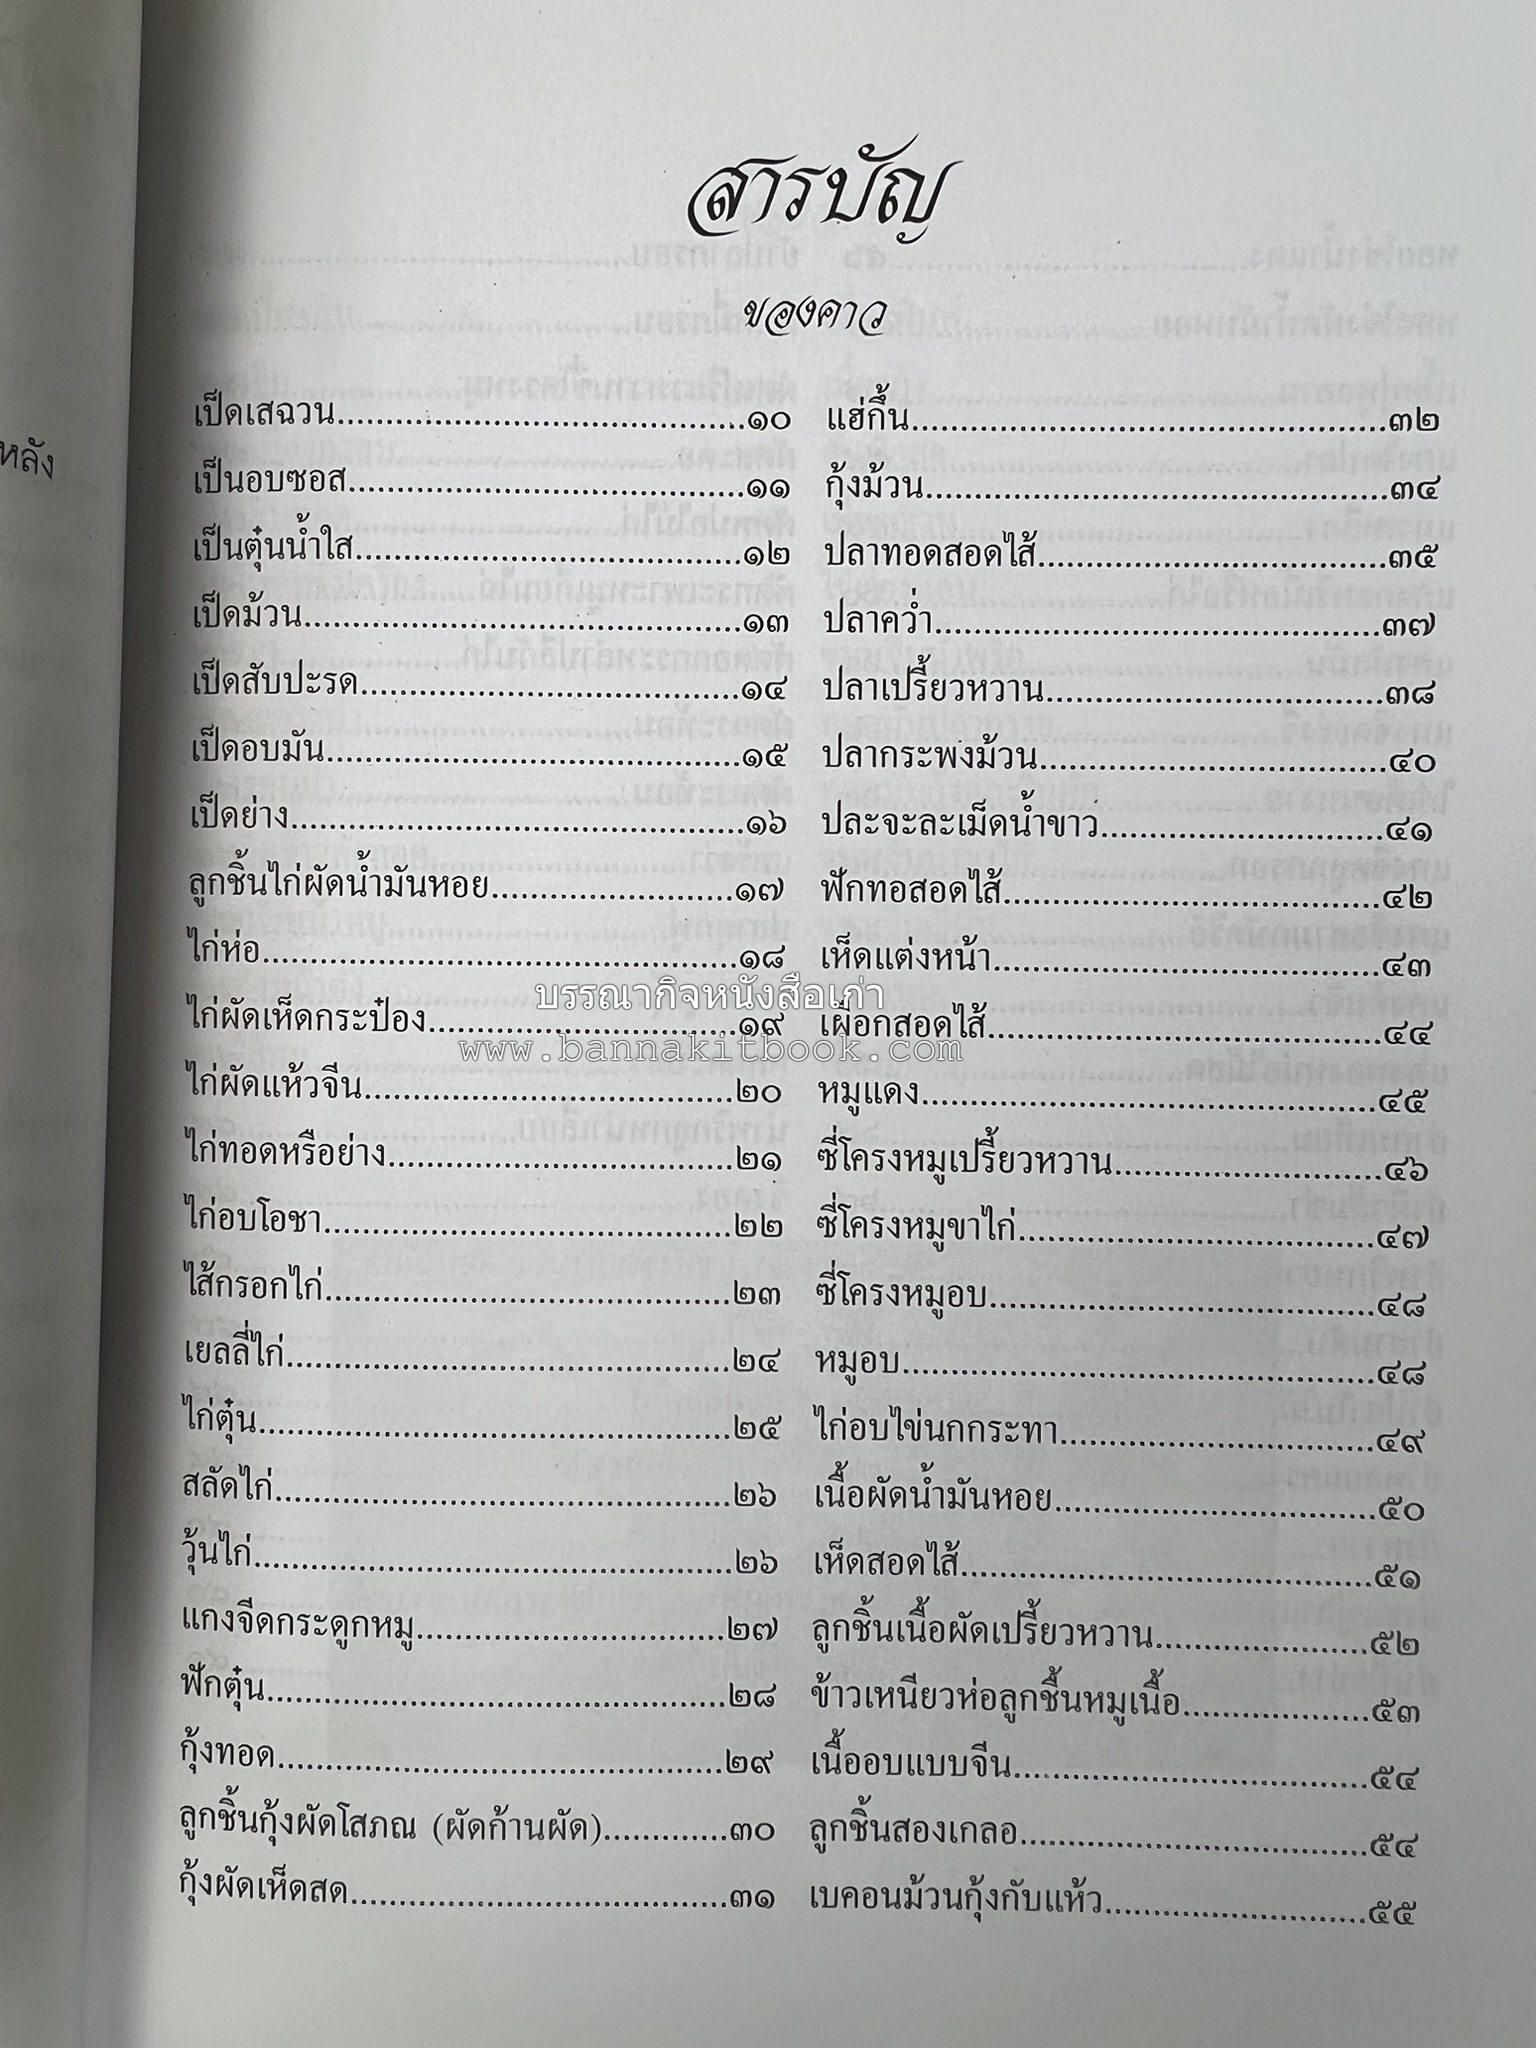 สารบัญ
ของคาว
หลัง
เป็ดเสฉวน ๑๐
เป็นอบซอส ๑๑
เป็นตุ๋นน้ำใส ๑๒
เป็ดม้วน ๑๓
เป็ดสับปะรด ๑๔
เป็ดอบมัน ๑๕
เป็ดย่าง ๑๖
ลูกชิ้นไก่ผัดน้ำมันหอย ๑๗
ไก่ห่อ ๑๘
ไก่ผัดเห็ดกระป๋อง ๑๙
ไก่ผัดแห้วจีน ๒๐
ไก่ทอดหรือย่าง ๒๑
ไก่อบโอชา ๒๒
ไส้กรอกไก่ ๒๓
เยลลี่ไก่ ๒๔
ไก่ตุ๋น ๒๕
สลัดไก่ ๒๖
วุ้นไก่ ๒๖
แกงจืดกระดูกหมู ๒๗
ฟักตุ๋น ๒๘
กุ้งทอด ๒๙
ลูกชิ้นกุ้งผัดโสภณ (ผัดก้านผัด) ๓๐
กุ้งผัดเห็ดสด ๓๑
แฮ่กึ้น ๓๒
กุ้งม้วน ๓๔
ปลาทอดสอดไส้ ๓๕
ปลาคว่ำ ๓๗
ปลาเปรี้ยวหวาน ๓๘
ปลากระพงม้วน ๔๐
ปละจะละเม็ดน้ำขาว ๔๑
ฟักทอสอดไส้ ๔๒
เห็ดแต่งหน้า ๔๓
เผือกสอดไส้ ๔๔
หมูแดง ๔๕
ซี่โครงหมูเปรี้ยวหวาน ๔๖
ซี่โครงหมูขาไก่ ๔๗
ซี่โครงหมูอบ ๔๘
หมูอบ ๔๘
ไก่อบไข่นกกระทา ๔๙
เนื้อผัดน้ำมันหอย ๕๐
เห็ดสอดไส้ ๕๑
ลูกชิ้นเนื้อผัดเปรี้ยวหวาน ๕๒
ข้าวเหนียวห่อลูกชิ้นหมูเนื้อ ๕๓
เนื้ออบแบบจีน ๕๔
ลูกชิ้นสองเกลอ ๕๔
เบคอนม้วนกุ้งกับแห้ว ๕๕
บรรณากิจหนังสือเก่า
www.bannakitbook.com